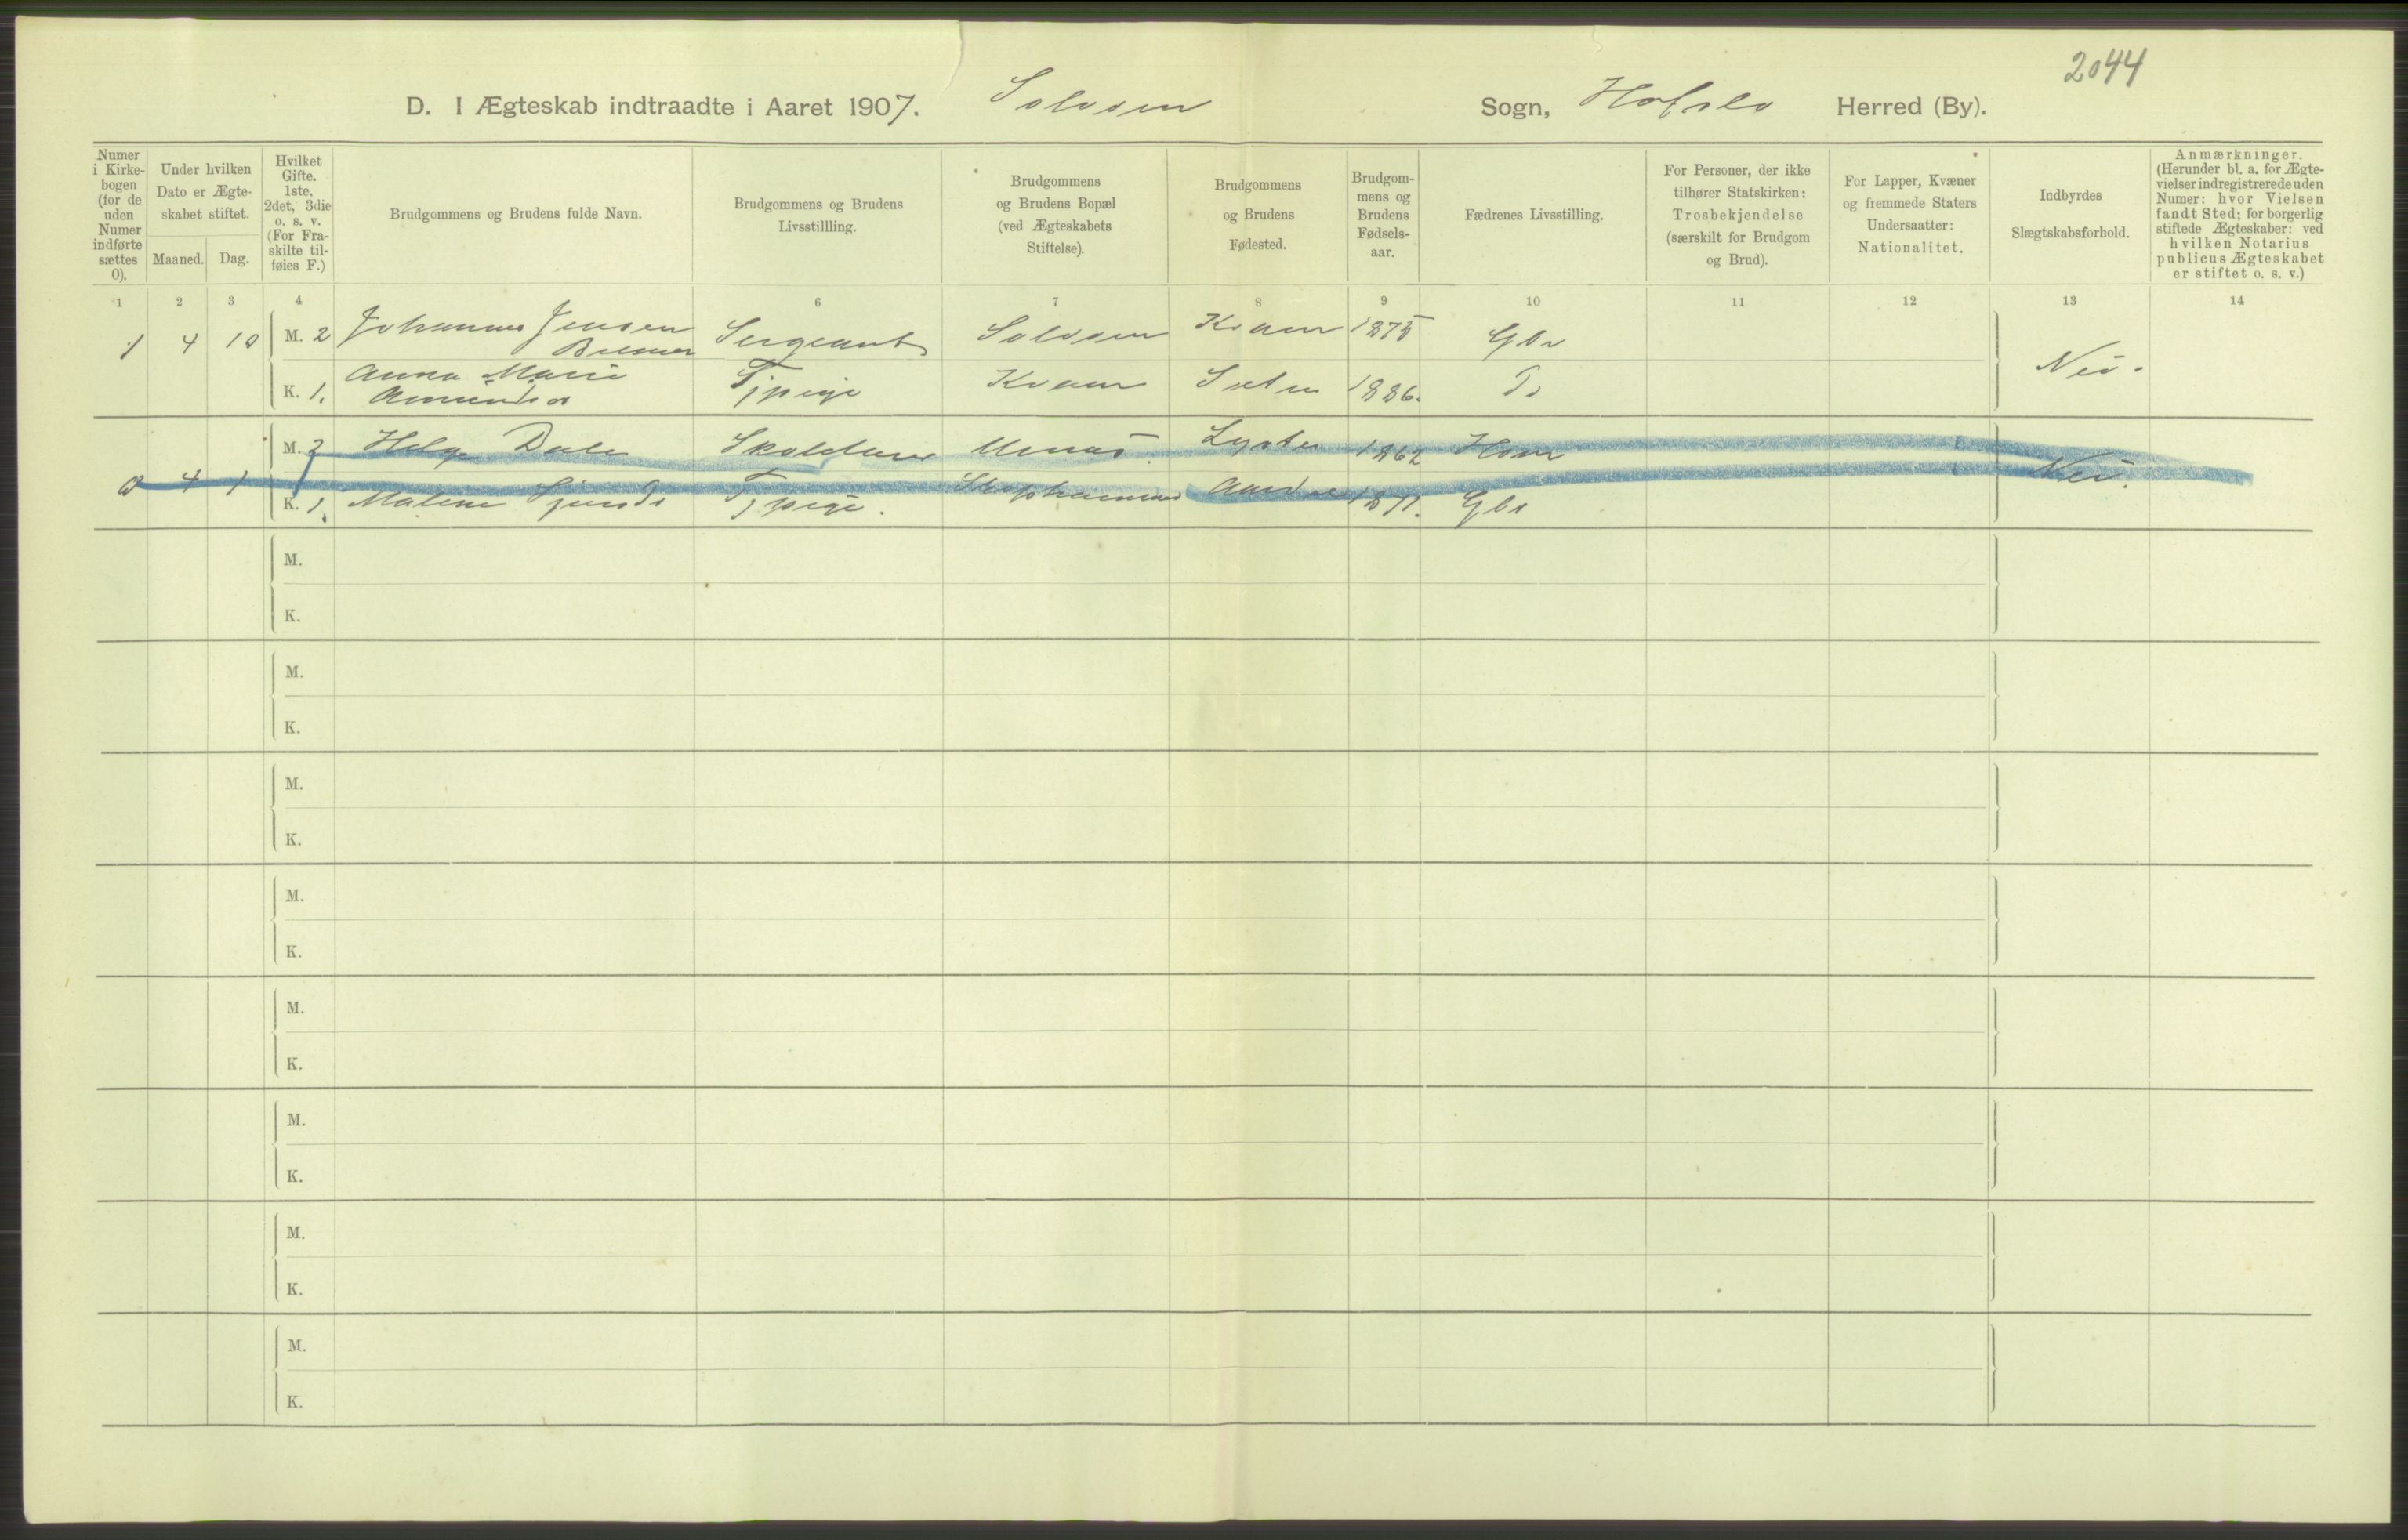 2044
D. I Ægteskab indtraadte i Aaret 1907. Solvorn Sogn, Hafslo Herred (By).
Numer i Kirkebogen (for de uden Numer indførte sættes 0).
Under hvilken Dato er Ægteskabet stiftet.
Maaned. Dag.
Hvilket Gifte. 1ste, 2det, 3die o. s. v. (For Fraskilte tilføies F.)
Brudgommens og Brudens fulde Navn.
Brudgommens og Brudens Livsstillling.
Brudgommens og Brudens Bopæl (ved Ægteskabets Stiftelse).
Brudgommens og Brudens Fødested.
Brudgommens og Brudens Fødselsaar.
Fædrenes Livsstilling.
For Personer, der ikke tilhører Statskirken: Trosbekjendelse (særskilt for Brudgom og Brud).
For Lapper, Kvæner og fremmede Staters Undersaatter: Nationalitet.
Indbyrdes Slægtskabsforhold.
Anmærkninger. (Herunder bl. a. for Ægtevielser indregistrerede uden Numer: hvor Vielsen fandt Sted; for borgerlig stiftede Ægteskaber: ved hvilken Notarius publicus Ægteskabet er stiftet o. s. v.)
1 2 3 4 6 7 8 9 10 11 12 13 14
1 4 10 M. 2 Johannes Jensen Sergeant Solvorn Kvam 1875 Gbr Nei.
K. 1. Anna Marie Tjpige Kvam 1886.
0 4 1 M. 2 Helge Dale Luster 1862 Nei.
K. 1. Malene Tjpige. 1871. Gbr
M.
K.
M.
K.
M.
K.
M.
K.
M.
K.
M.
K.
M.
K.
M.
K.